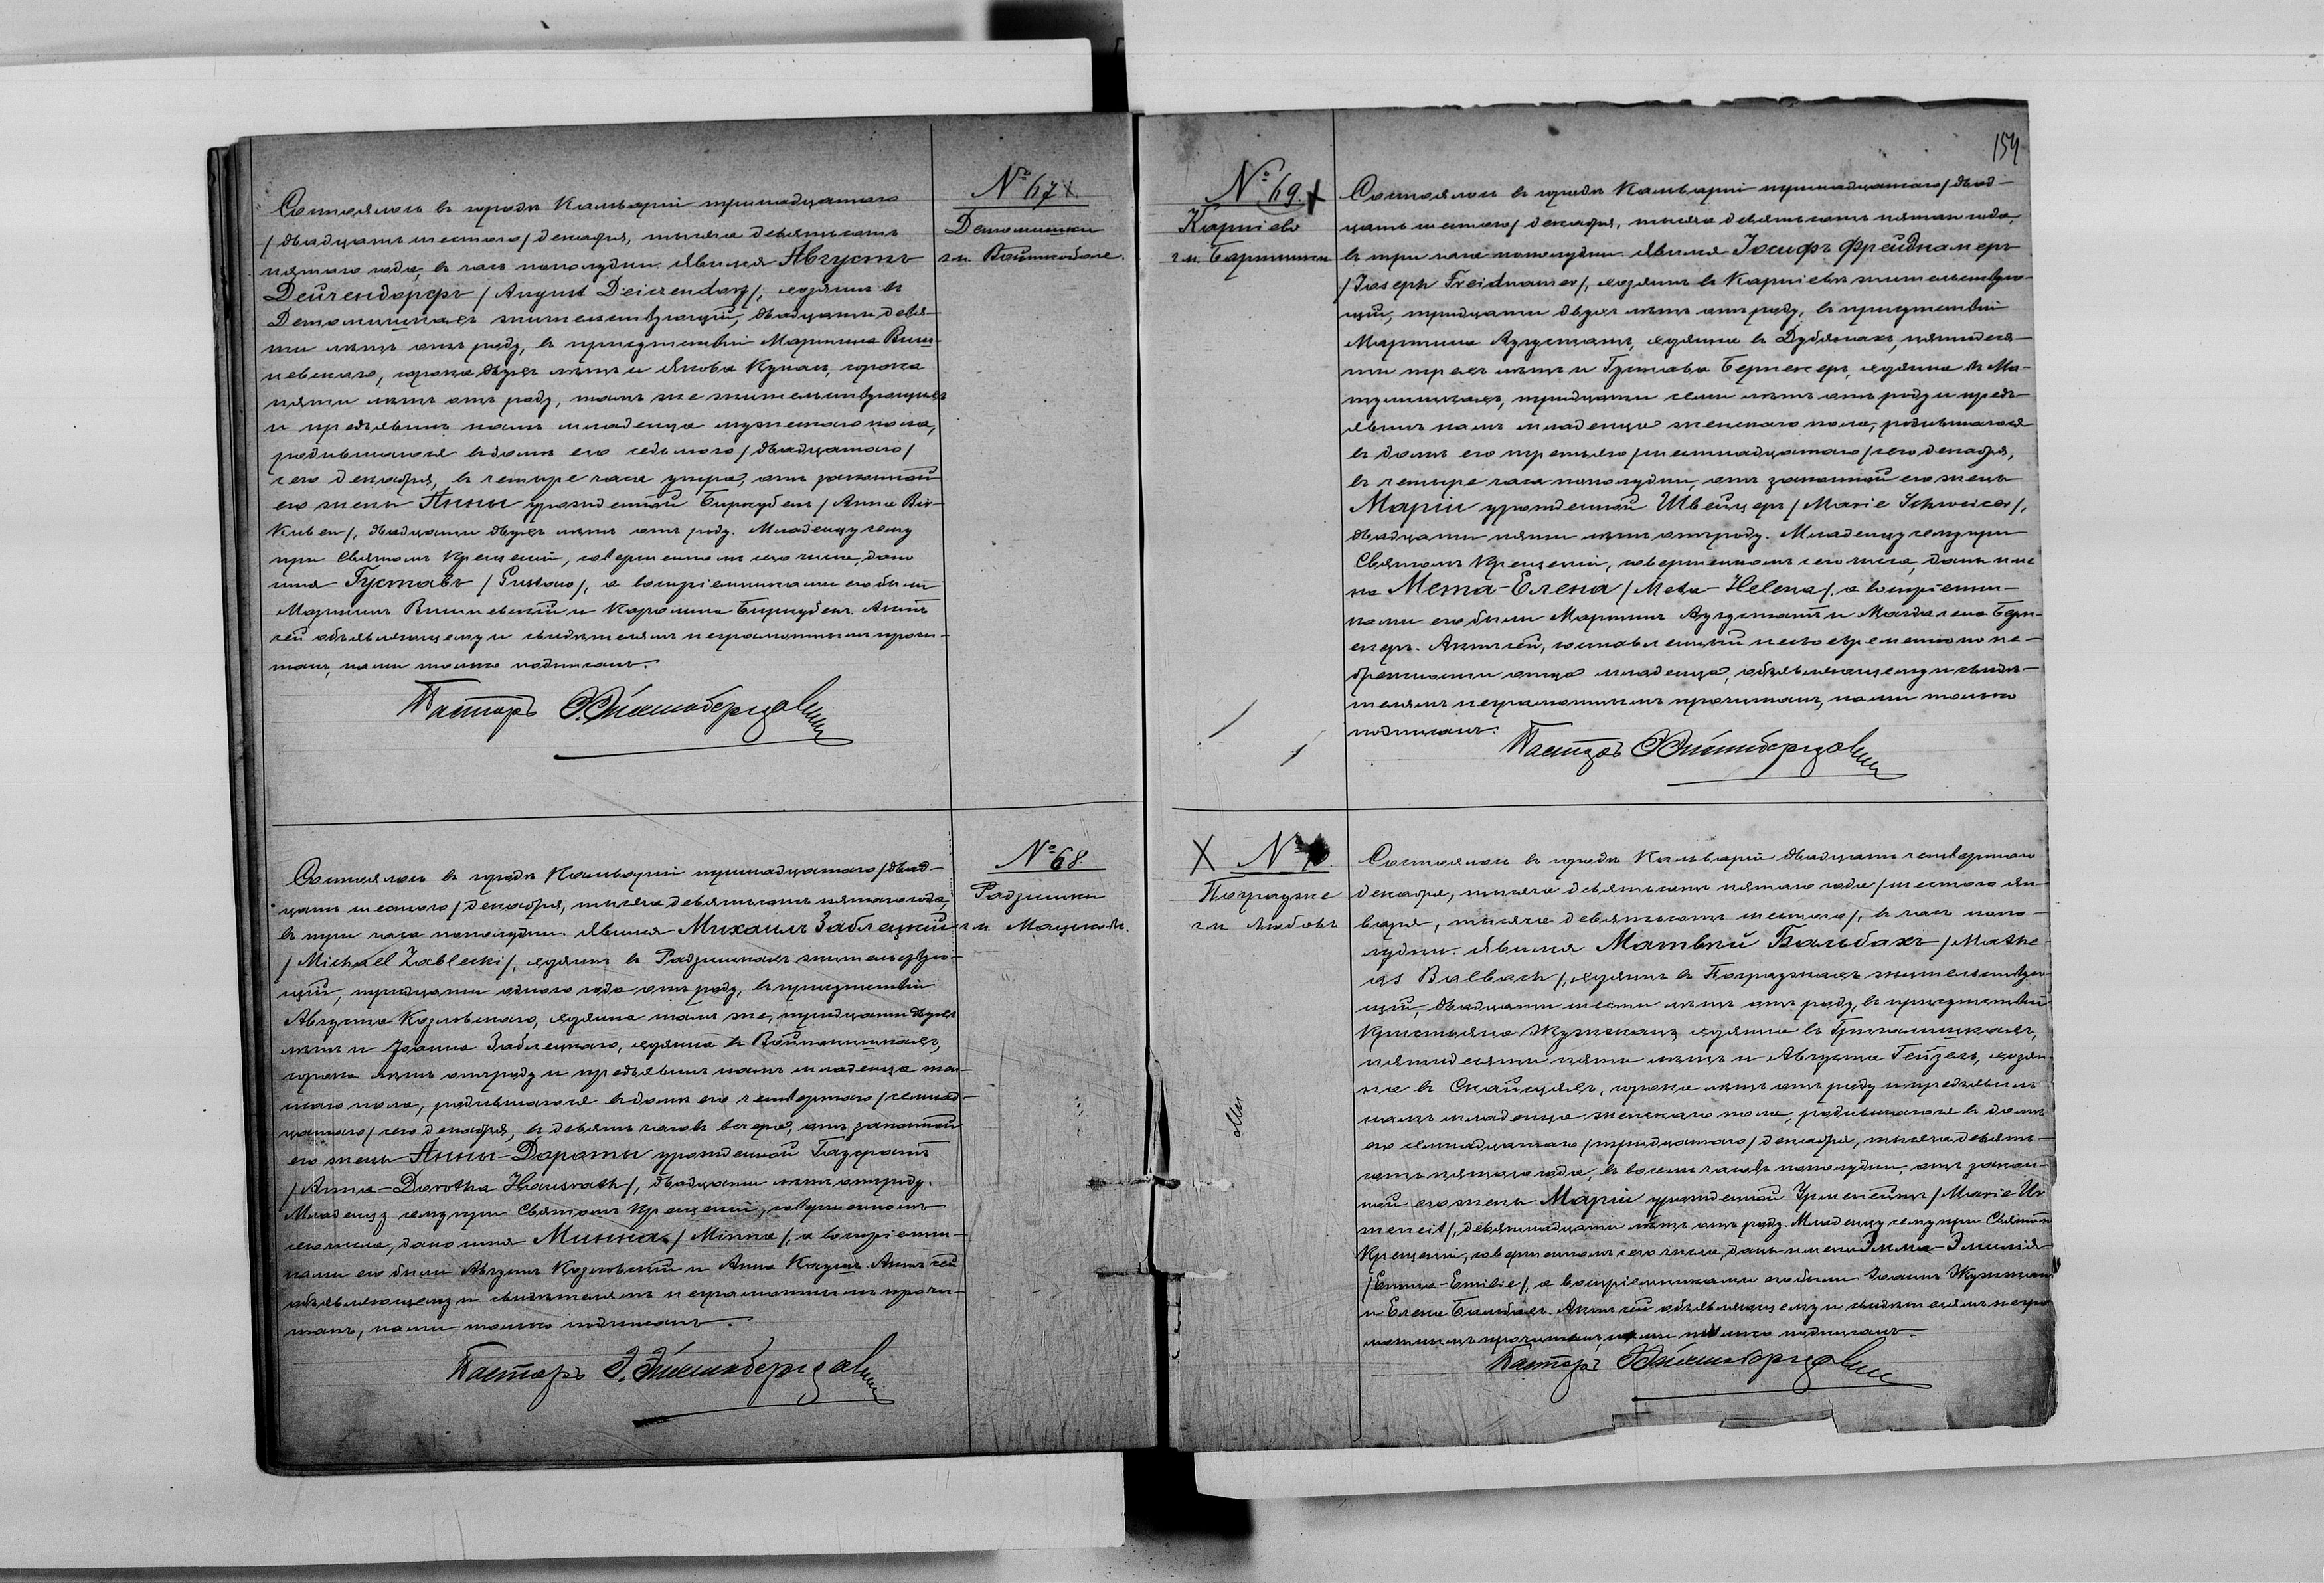 № 67 X
Детомишки
гм. Войткобole.
Состоялось въ городѣ Кальваріи тринадцатаго
/двадцать шестого/ декабря, тысяча девятьсотъ
пятаго года, въ часъ пополудни. Явился Августъ
Дейчендорфъ /August Deiczendorf/, хозяинъ въ
Детомишкахъ жительствующій, двадцати девя-
ти лѣтъ отъ роду, въ присутствіи Мартина Виш-
невскаго, сорока двухъ лѣтъ и Якова Кунцъ, сорока
пяти лѣтъ отъ роду, тамъ же жительствующихъ
и предъявилъ намъ младенца мужескаго пола,
родившагося въ домѣ его седьмого /двадцатаго/
сего декабря, въ четыре часа утра, отъ законной
его жены Анны урожденной Биркубенъ /Anna Bir-
kuben/, двадцати двухъ лѣтъ отъ роду. Младенцу сему
при Святомъ Крещеніи, совершенномъ сего числа, дано
имя Густавъ /Gustaw/, а воспріемниками его были
Мартинъ Вишневскій и Каролина Биркубенъ. Актъ
сей объявляющему и свидѣтелямъ неграмотнымъ прочи-
танъ, нами только подписанъ.
Пасторъ
№ 68.
Радзишки
гм.
Состоялось въ городѣ Кальваріи тринадцатаго /двад-
цать шестого/ декабря, тысяча девятьсотъ пятаго года,
въ три часа пополудни. Явился Михаилъ Заблецкій
/Michael Zablecki/, хозяинъ въ Радзишкахъ жительствую-
щій, тридцати одного года отъ роду, въ присутствіи
Августа Козловскаго, хозяина тамъ же, тридцати двухъ
лѣтъ и Іоанна Заблецкаго, хозяина въ
сорока лѣтъ отъ роду и предъявилъ намъ младенца жен-
скаго пола, родившагося въ домѣ его четвертаго /семнад-
цатаго/ сего декабря, въ девять часовъ вечера, отъ законной
его жены Анны-Дороты урожденной Гаузратъ
/Anna-Dorotha Hausrath/, двадцати лѣтъ отъ роду.
Младенцу сему при Святомъ Крещеніи, совершенномъ
сего числа, дано имя Минна /Minna/, а воспріемни-
ками его были Августъ Козловскій и Анна Актъ сей
объявляющему и свидѣтелямъ неграмотнымъ прочи-
танъ, нами только подписанъ.
Пасторъ
154
№ 69. X
Карпіево
гм. Бартники
Состоялось въ городѣ Кальваріи тринадцатаго /двад-
цать шестого/ декабря, тысяча девятьсотъ пятаго года,
въ три часа пополудни. Явился Іосифъ Фрейднамеръ
/Joseph Freidnamer/, хозяинъ въ Карпіевѣ жительствую-
щій, тридцати двухъ лѣтъ отъ роду, въ присутствіи
Мартина Аугустатъ, хозяина въ Дубянахъ, пятидеся-
ти трехъ лѣтъ и Густава Бернекеръ, хозяина въ Ма-
тулишкахъ, тридцати семи лѣтъ отъ роду и предъ-
явилъ намъ младенца женскаго пола, родившагося
въ домѣ его третьяго /шестнадцатаго/ сего декабря,
въ четыре часа пополудни, отъ законной его жены
Маріи урожденной Швейцеръ /Marie Schweicer/,
двадцати пяти лѣтъ отъ роду. Младенцу сему при
Святомъ Крещеніи, совершенномъ сего числа, даны име-
на Мета-Елена /Meta-Helena/, а воспріемни-
ками его были Мартинъ Аугустатъ и Магдалена Берн-
екеръ. Актъ сей, составленный несвоевременно по не-
брежности отца младенца, объявляющему и свидѣ-
телямъ неграмотнымъ прочитанъ, нами только
подписанъ.
Пасторъ
X №
Пограузже
гм. Любовъ
Состоялось въ городѣ Кальваріи двадцать четвертаго
декабря, тысяча девятьсотъ пятаго года /шестого ян-
варя, тысяча девятьсотъ шестого/, въ часъ попо-
лудни. Явился Матвѣй Бальбахъ /Mathe-
us Balbach/, хозяинъ въ Пограузжахъ жительствую-
щій, двадцати шести лѣтъ отъ роду, въ присутствіи
Кристьяна хозяина въ
пятидесяти пяти лѣтъ и Августа Гензель, хозяи-
на въ сорока лѣтъ отъ роду и предъявилъ
намъ младенца женскаго пола, родившагося въ домѣ
его семнадцатаго /тридцатаго/ декабря, тысяча девять-
сотъ пятаго года, въ восемь часовъ пополудни, отъ закон-
ной его жены Маріи урожденной Урменейтъ /Marie Ur-
meneit/, девятнадцати лѣтъ отъ роду. Младенцу сему при Святомъ
Крещеніи, совершенномъ сего числа, даны имена Эмма-Эмилія
/Emma-Emilie/, а воспріемниками его были Іоаннъ
и Елена Бальбахъ. Актъ сей объявляющему и свидѣтелямъ негра-
мотнымъ прочитанъ, нами только подписанъ.
Пасторъ